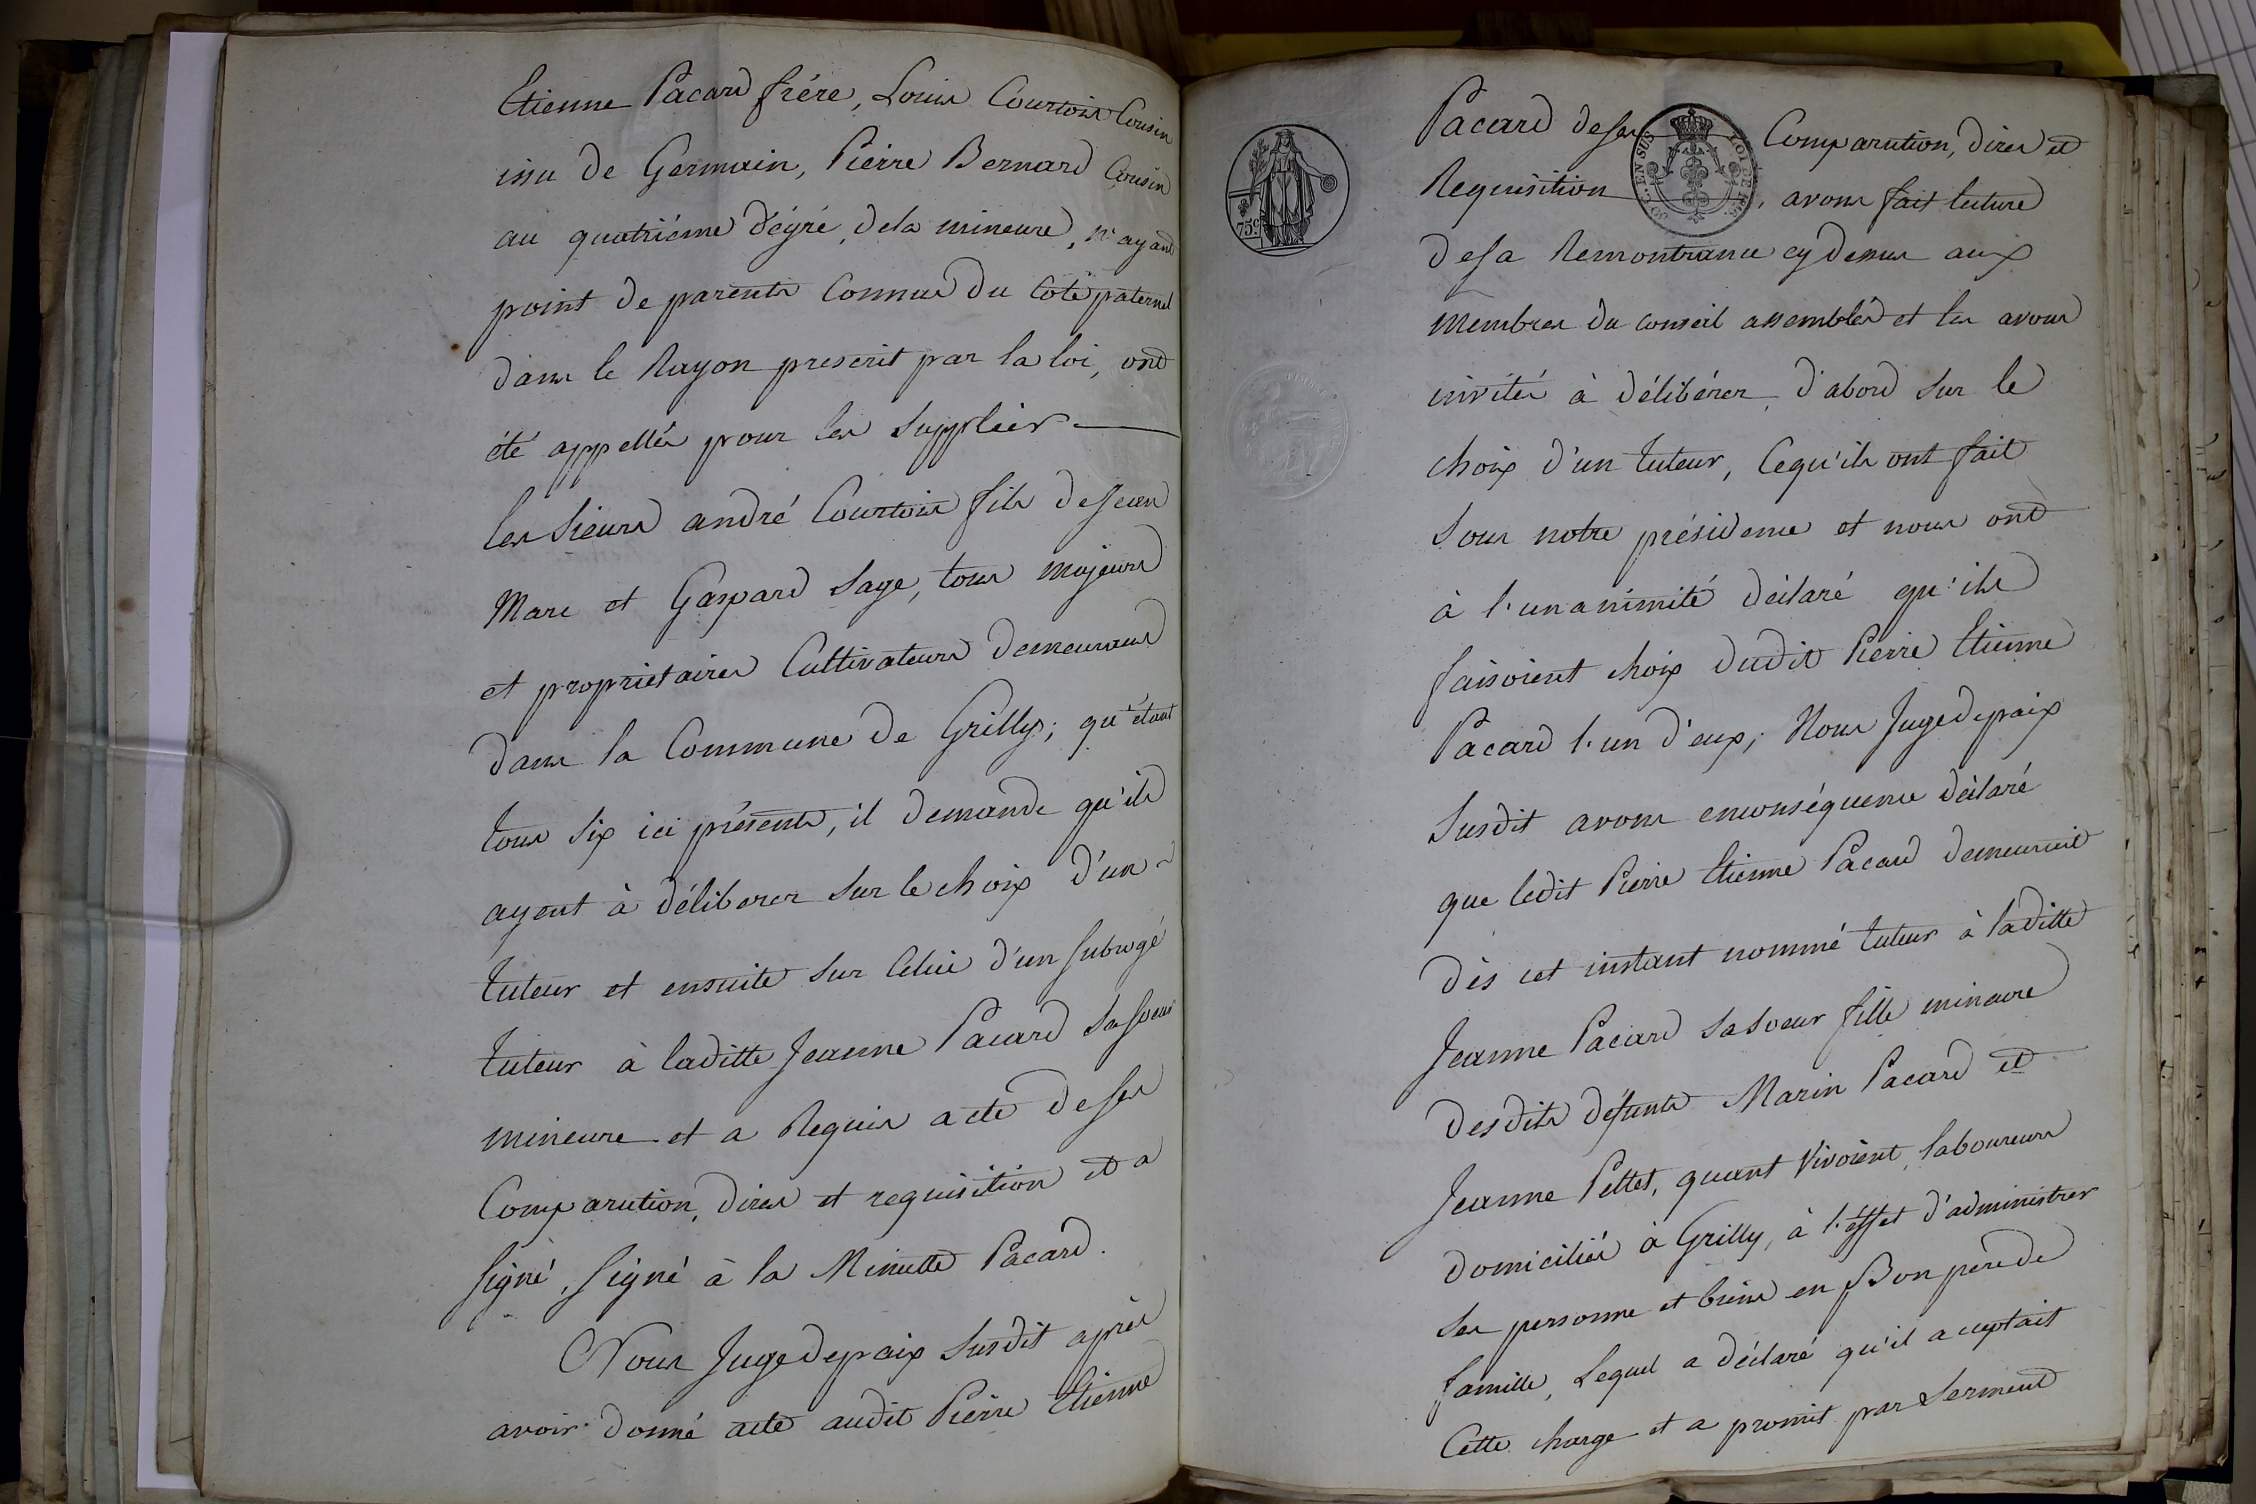 Etienne Pacard frére, Louis Courtois Cousin
issu de Germain, Pierre Bernard Cousin
au quatriéme dégré, dela mineure, n'ayant
point de parents connus du coté paternel
dans le Rayon prescrit par la loi, ont
été appellés pour les supplèer
les sieurs andré Courtois fils de Jean
Marc et Gaspard Sage, tous majeurs
et propriétaires Cultivateurs demeurans
dans la Commune de Grilly; qu'étant
tous six ici présents, il demande qu'ils
ayent à déliberer sur le choix d'un
tuteur et ensuite sur celui d'un subrogé
tuteur à laditte Jeanne Pacard sa soeur
mineure et a Requis acte de ses
Comparution, dires et requisition et a
signé, signé à la Minutte Pacard.
Nous Juge depaix susdit après
avoir donné acte audit Pierre Etienne
Pacard de ses Comparution, dires et
Requisition, avons fait lecture
desa Remontrance cydessus aux
membres du conseil assemblés et les avons
invités à délibérer, d'abord sur le
choix d'un tuteur, cequ'ils ont fait
sous notre présidence et nous ont
à l'unanimité déclaré qu'ils
faisoient choix dudit Pierre Etienne
Pacard l'un d'eux; Nous Juge depaix
susdit avons enconséquence déclaré
que ledit Pierre Etienne Pacard demeuroit
dès cet instant nommé tuteur à laditte
Jeanne Pacard sa soeur fille mineure
desdits défunts Marin Pacard et
Jeanne Pettet, quant vivoient, laboureurs
domiciliés à Grilly, à l'éffet d'administrer
ses personne et biens en Bon pere de
famille, Lequel a déclaré qu'il acceptait
Cette charge et a promit par serment
75 c